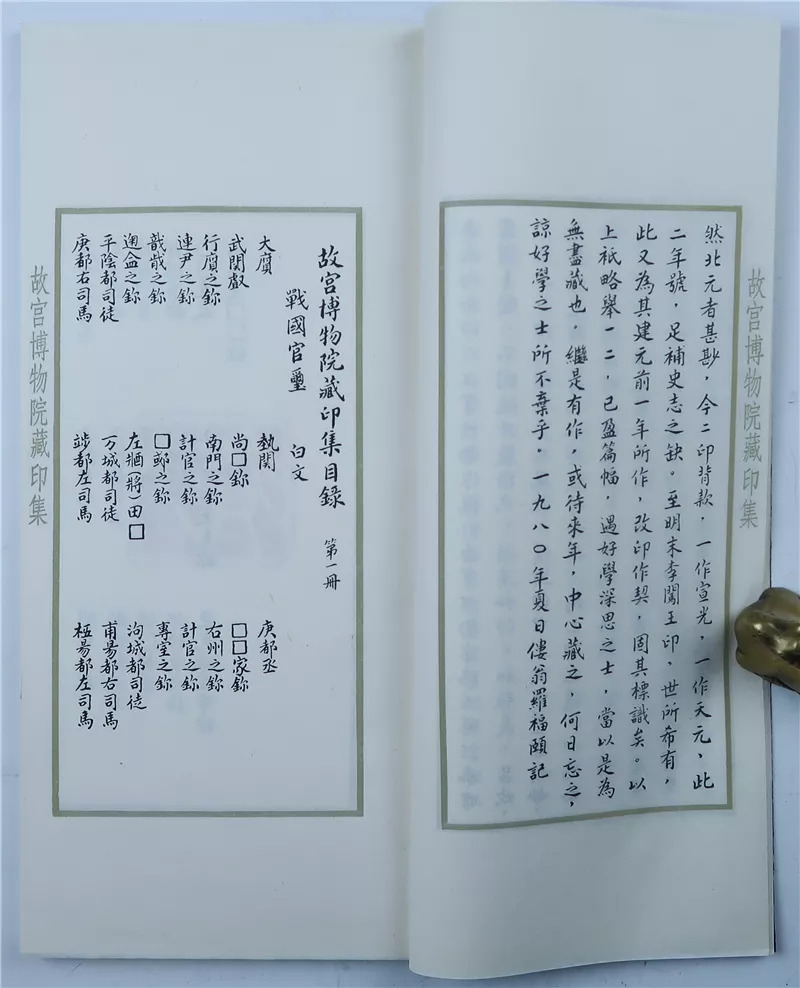 故宮博物院藏印集
然北元者甚尠，今二印背款，一作宣光，一作天元，此
二年號，足補史志之缺。至明末李闖王印，世所希有，
此又為其建元前一年所作，改印作契，固其標識矣。以
上祇略舉一二，已盈篇幅，遇好學深思之士，當以是為
無盡藏也，繼是有作，或待來年，中心藏之，何日忘之，
諒好學之士所不棄乎。一九八〇年夏日僂翁羅福頤記
故宮博物院藏印集目錄 第一冊
戰國官璽 白文
大廥 執関 庚都丞
武関叡 尚□鉨 □□家鉨
行廥之鉨 南門之鉨 右州之鉨
連尹之鉨 計官之鉨 計官之鉨
戠歲之鉨 □郢之鉨 專室之鉨
左 田□ 洵城都司徒
平陰都司徒 方城都司徒 甫昜都右司馬
庚都右司馬 都左司馬 昜都左司馬
故宮博物院藏印集